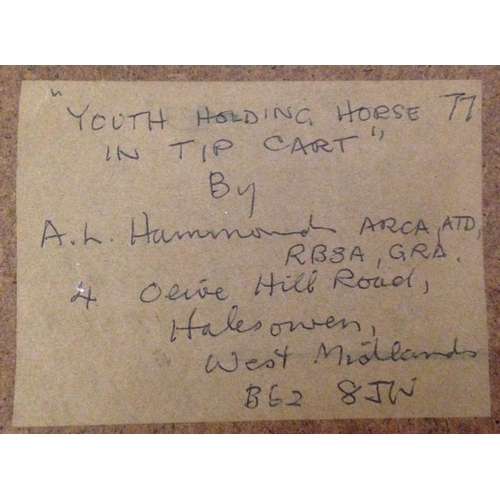 "YOUTH HOLDING HORSE 77
IN TIP CART"
By
A.L. Hammonds ARCA, ATD,
RBSA, GRA.
4 Olive Hill Road,
Halesowen,
West Midlands
B62 8JW